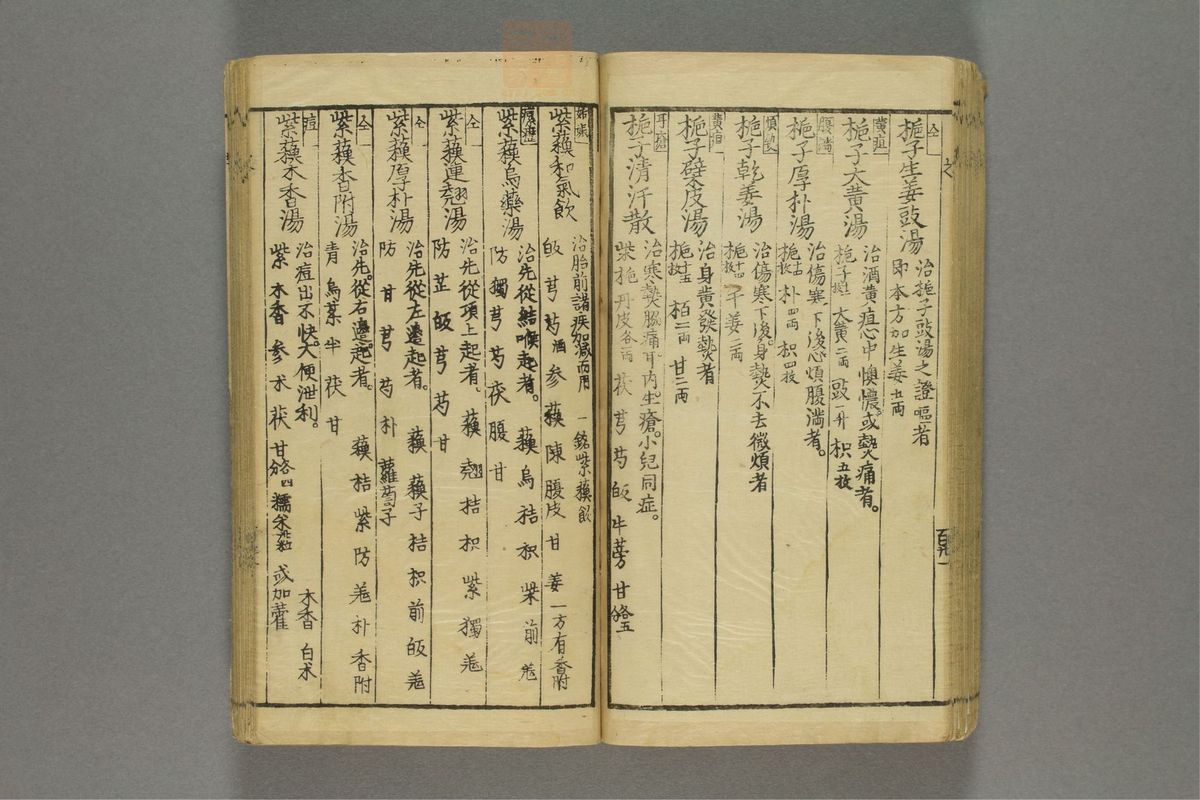 仝
梔子生姜豉湯
治梔子豉湯之證嘔者
即本方加生姜五両
黄疸
梔子大黄湯
治酒黄疸心中懊憹或熱痛者。
梔子 大黄二両 豉一升 枳五枚
腹満
梔子厚朴湯
治傷寒下後心煩腹満者。
梔十四枚 朴四両 枳四枚
煩熱
梔子乾姜湯
治傷寒下後。身熱不去微煩者
梔十四枚 干姜二両
黄疸
梔子檗皮湯
治身黄發熱者
梔十五枚 栢二両 甘二両
耳瘡
梔子清汗散
治寒熱脇痛。耳内生瘡。小児同症。
柴 梔 丹皮各両 茯 芎 芍 皈 牛蒡 甘各五分
百九一
紫蘓和氣飲
治胎前諸疾加减而用 一銘紫蘓飲
皈 芎 芍酒 参 蘓 陳 腹皮 甘 姜 一方有香附
紫蘓烏藥湯
治先從結喉起者。 蘓 烏 桔 枳 柴 前 羗
防 獨 芎 芍 茯 腹 甘
仝
紫蘓連翹湯
治先從項上起者。 蘓 翹 桔 枳 紫 獨 羗
防 芷 皈 芎 芍 甘
仝
紫蘓厚朴湯
治先從左邉起者。 蘓 蘓子 桔 枳 前 皈 羗
防 甘 芎 芍 朴 蘿蔔子
仝
紫蘓香附湯
治先從右邉起者。 蘓 桔 紫 防 羗 朴 香附
青 烏 葉 半 茯 甘
痘
紫蘓木香湯
治痘出不快。大便泄利。 木香 白朮
紫 木香 参 朮 茯 甘各四分 糯米 或加藿